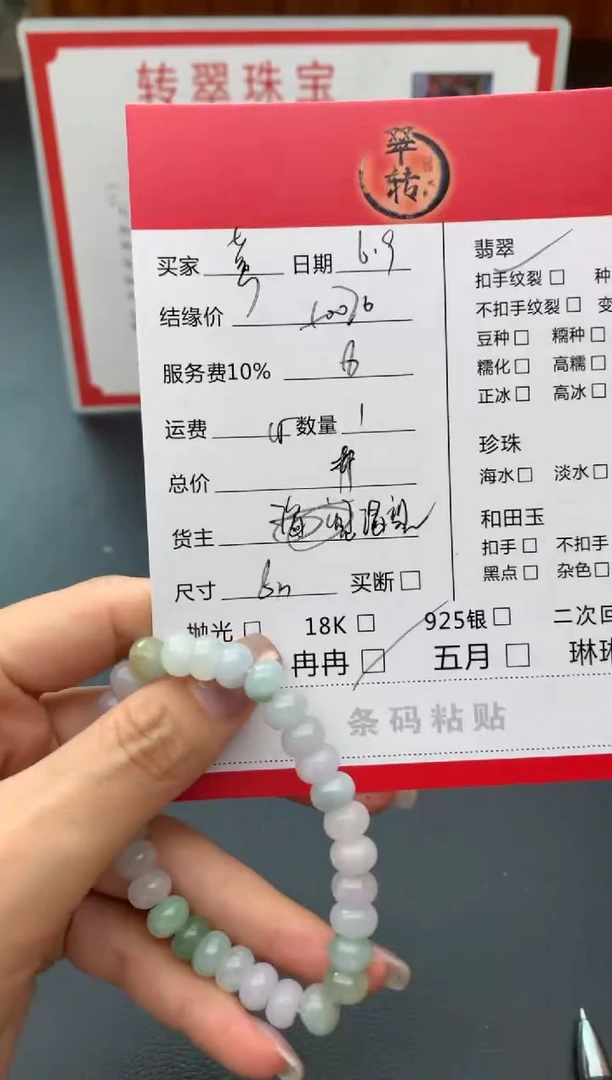 转翠珠宝
翠
转
买家 日期 6.9
结缘价
服务费10%
运费 数量 1
总价
货主
尺寸 买断□
抛光□ 18K□ 925银□ 二次回
冉冉□ 五月□ 琳琳
条码粘贴
翡翠
扣手纹裂□ 种
不扣手纹裂□ 变
豆种□ 糯种□
糯化□ 高糯□
正冰□ 高冰□
珍珠
海水□ 淡水□
和田玉
扣手□ 不扣手
黑点□ 杂色□